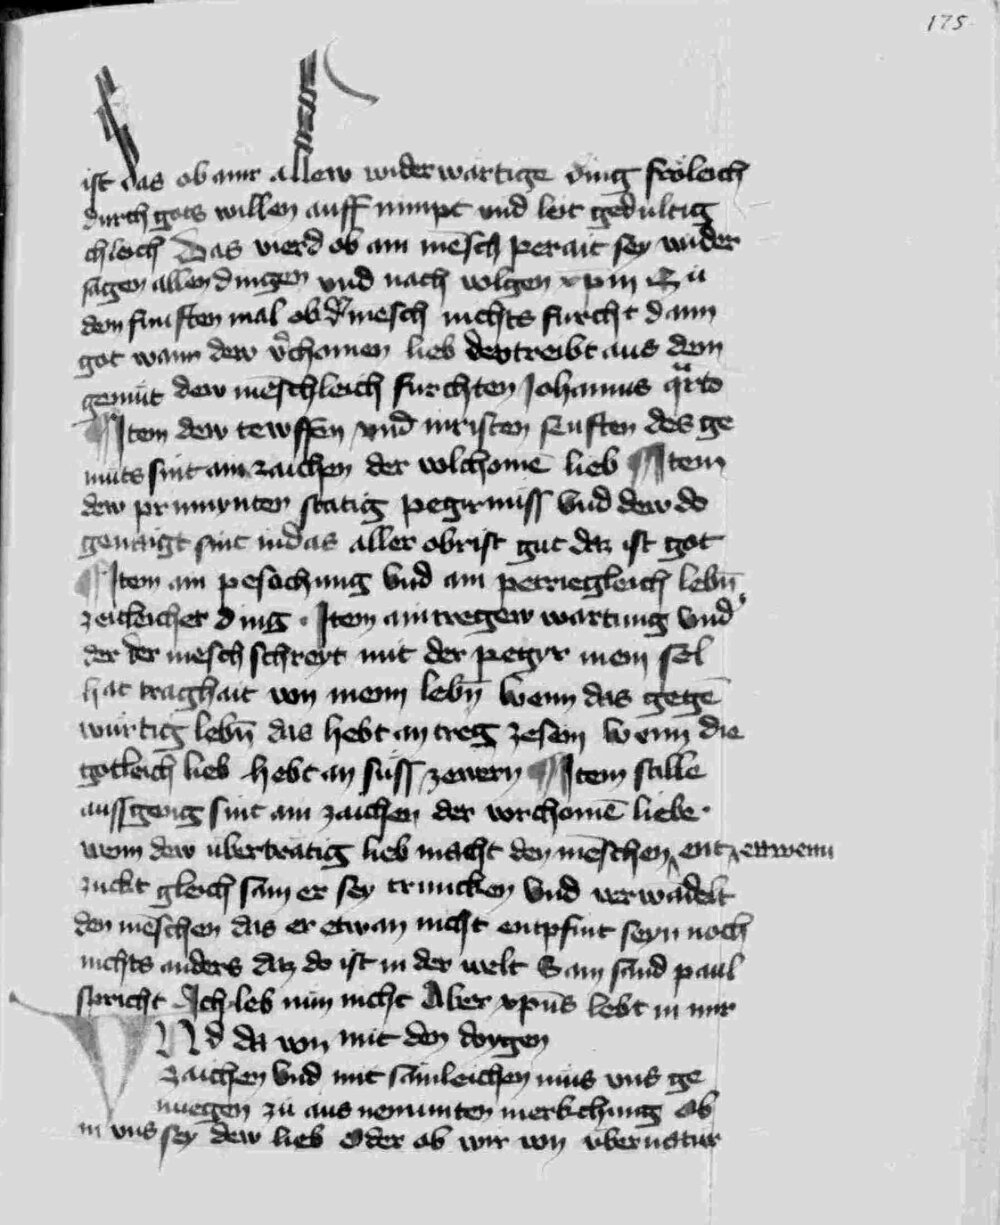 175
ist das ob ainr allew widerwartige ding fröleich
durch gots willen auff nimpt vnd leit gedultig
chleich Das vierd ob ain mēsch perait sey wider
sagen allen dingen vnd nach volgen xpm Zu
dem finften mal ob d͛ mēsch nichts furcht dann
got wann dew v̉chomen lieb vertreibt aus dem
gemüt dew mēschleich furchten Johannis qrto
Item dew tewffen vnd inristen seuften des ge
müts sint ain zaichen der volchomē lieb Item
dew prinnynten statig pegirnuss vnd dew do
genaigt sint in das aller obrist gut daz ist got
Item ain pesachung vnd ain petriegleich lebn̄
zeitleicher ding . Item ain tregew wartung vnd
der der mēsch schreyt mit der pegyr mein sel
hat traghait von meim lebn̄ Wenn das gegē
würtig lebn̄ das hebt an treg ze sein Wenn die
gotleich lieb hebt an süss zewern Item stille
aussgeng sint ain zaichen der vorchomē liebe.
wenn dew übertrātig lieb macht den mēschen ent ettwenn
zuckt gleich sam er sey truncken vnd verwādelt
den mēschen das er etwan nicht entpfint seyn noch
nichts anders daz do ist in der welt Sam sand paul
spricht Ich leb nun nicht Aber xpūs lebt in mir
VNd da von mit den dbygen
zaichen vnd mit sāmleichen mus vns ge
nuegen zu aus nemunten merkchung Ob
in vns sey dew lieb Oder ob wir von vbernatur